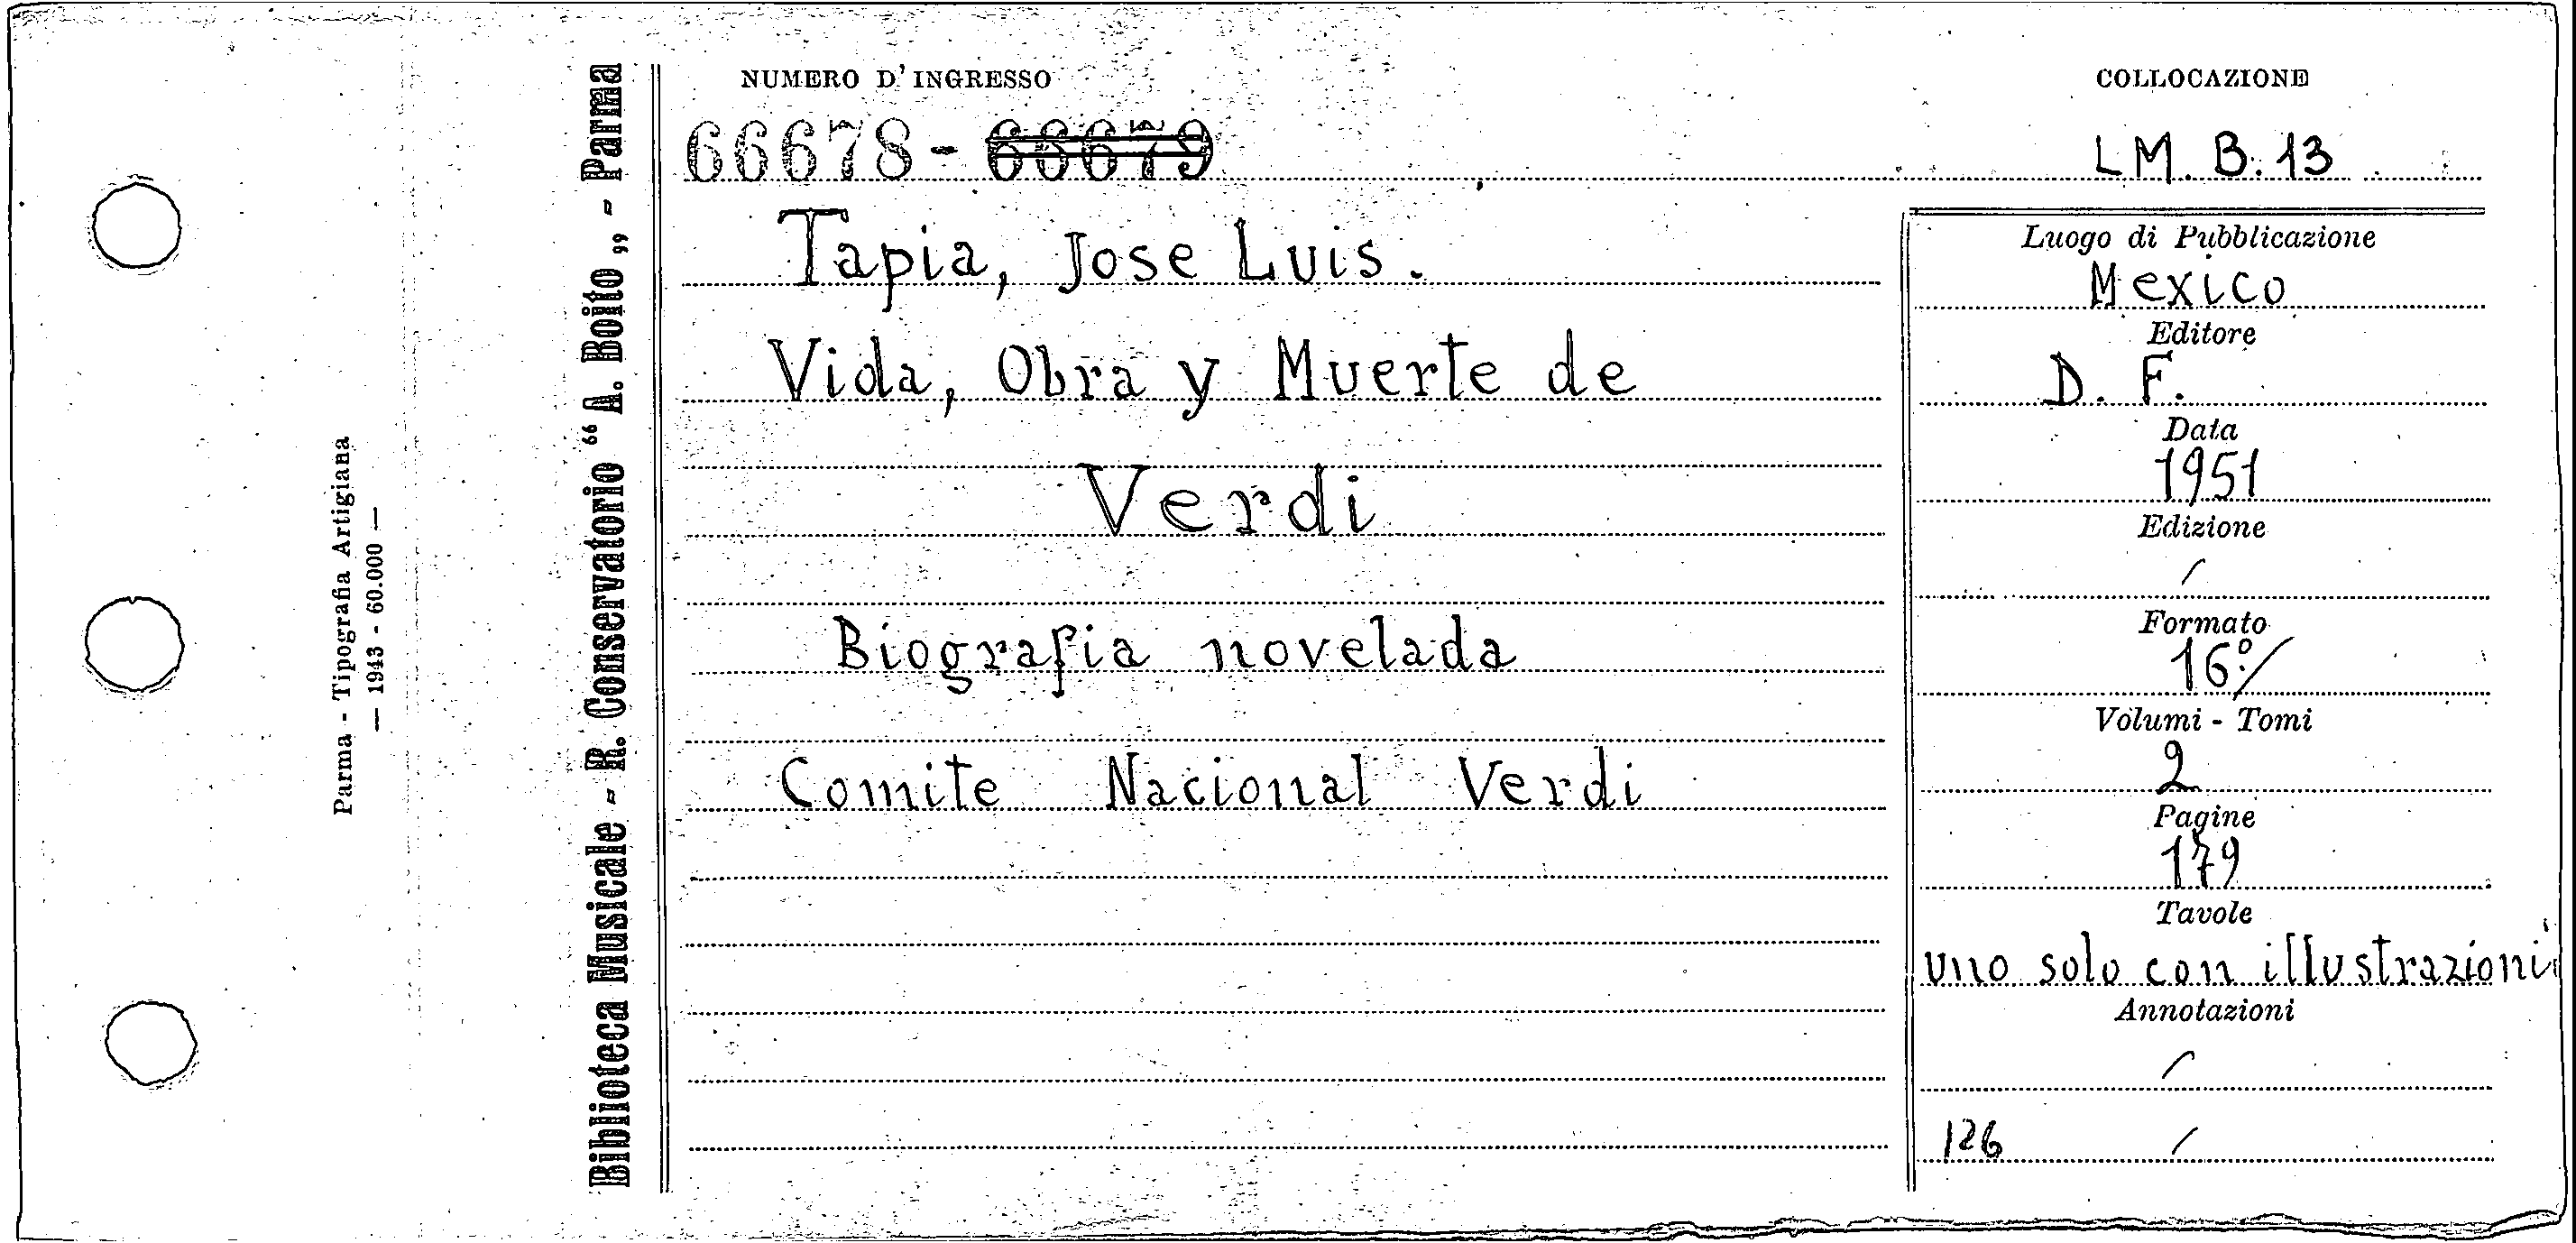 Parma - Tipografia Artigiana
— 1943 - 60.000 —
Biblioteca Musicale - R. Conservatorio “ A. Boito „ - Parma
NUMERO D' INGRESSO
66678 - 66679
Tapia, Jose Luis.
Vida, Obra y Muerte de
Verdi
Biografia novelada
Comite Nacional Verdi
COLLOCAZIONE
LM. B. 13
Luogo di Pubblicazione
Mexico
Editore
D. F.
Data
1951
Edizione
/
Formato
16º/
Volumi - Tomi
2
Pagine
179
Tavole
uno solo con illustrazioni
Annotazioni
/
126 /